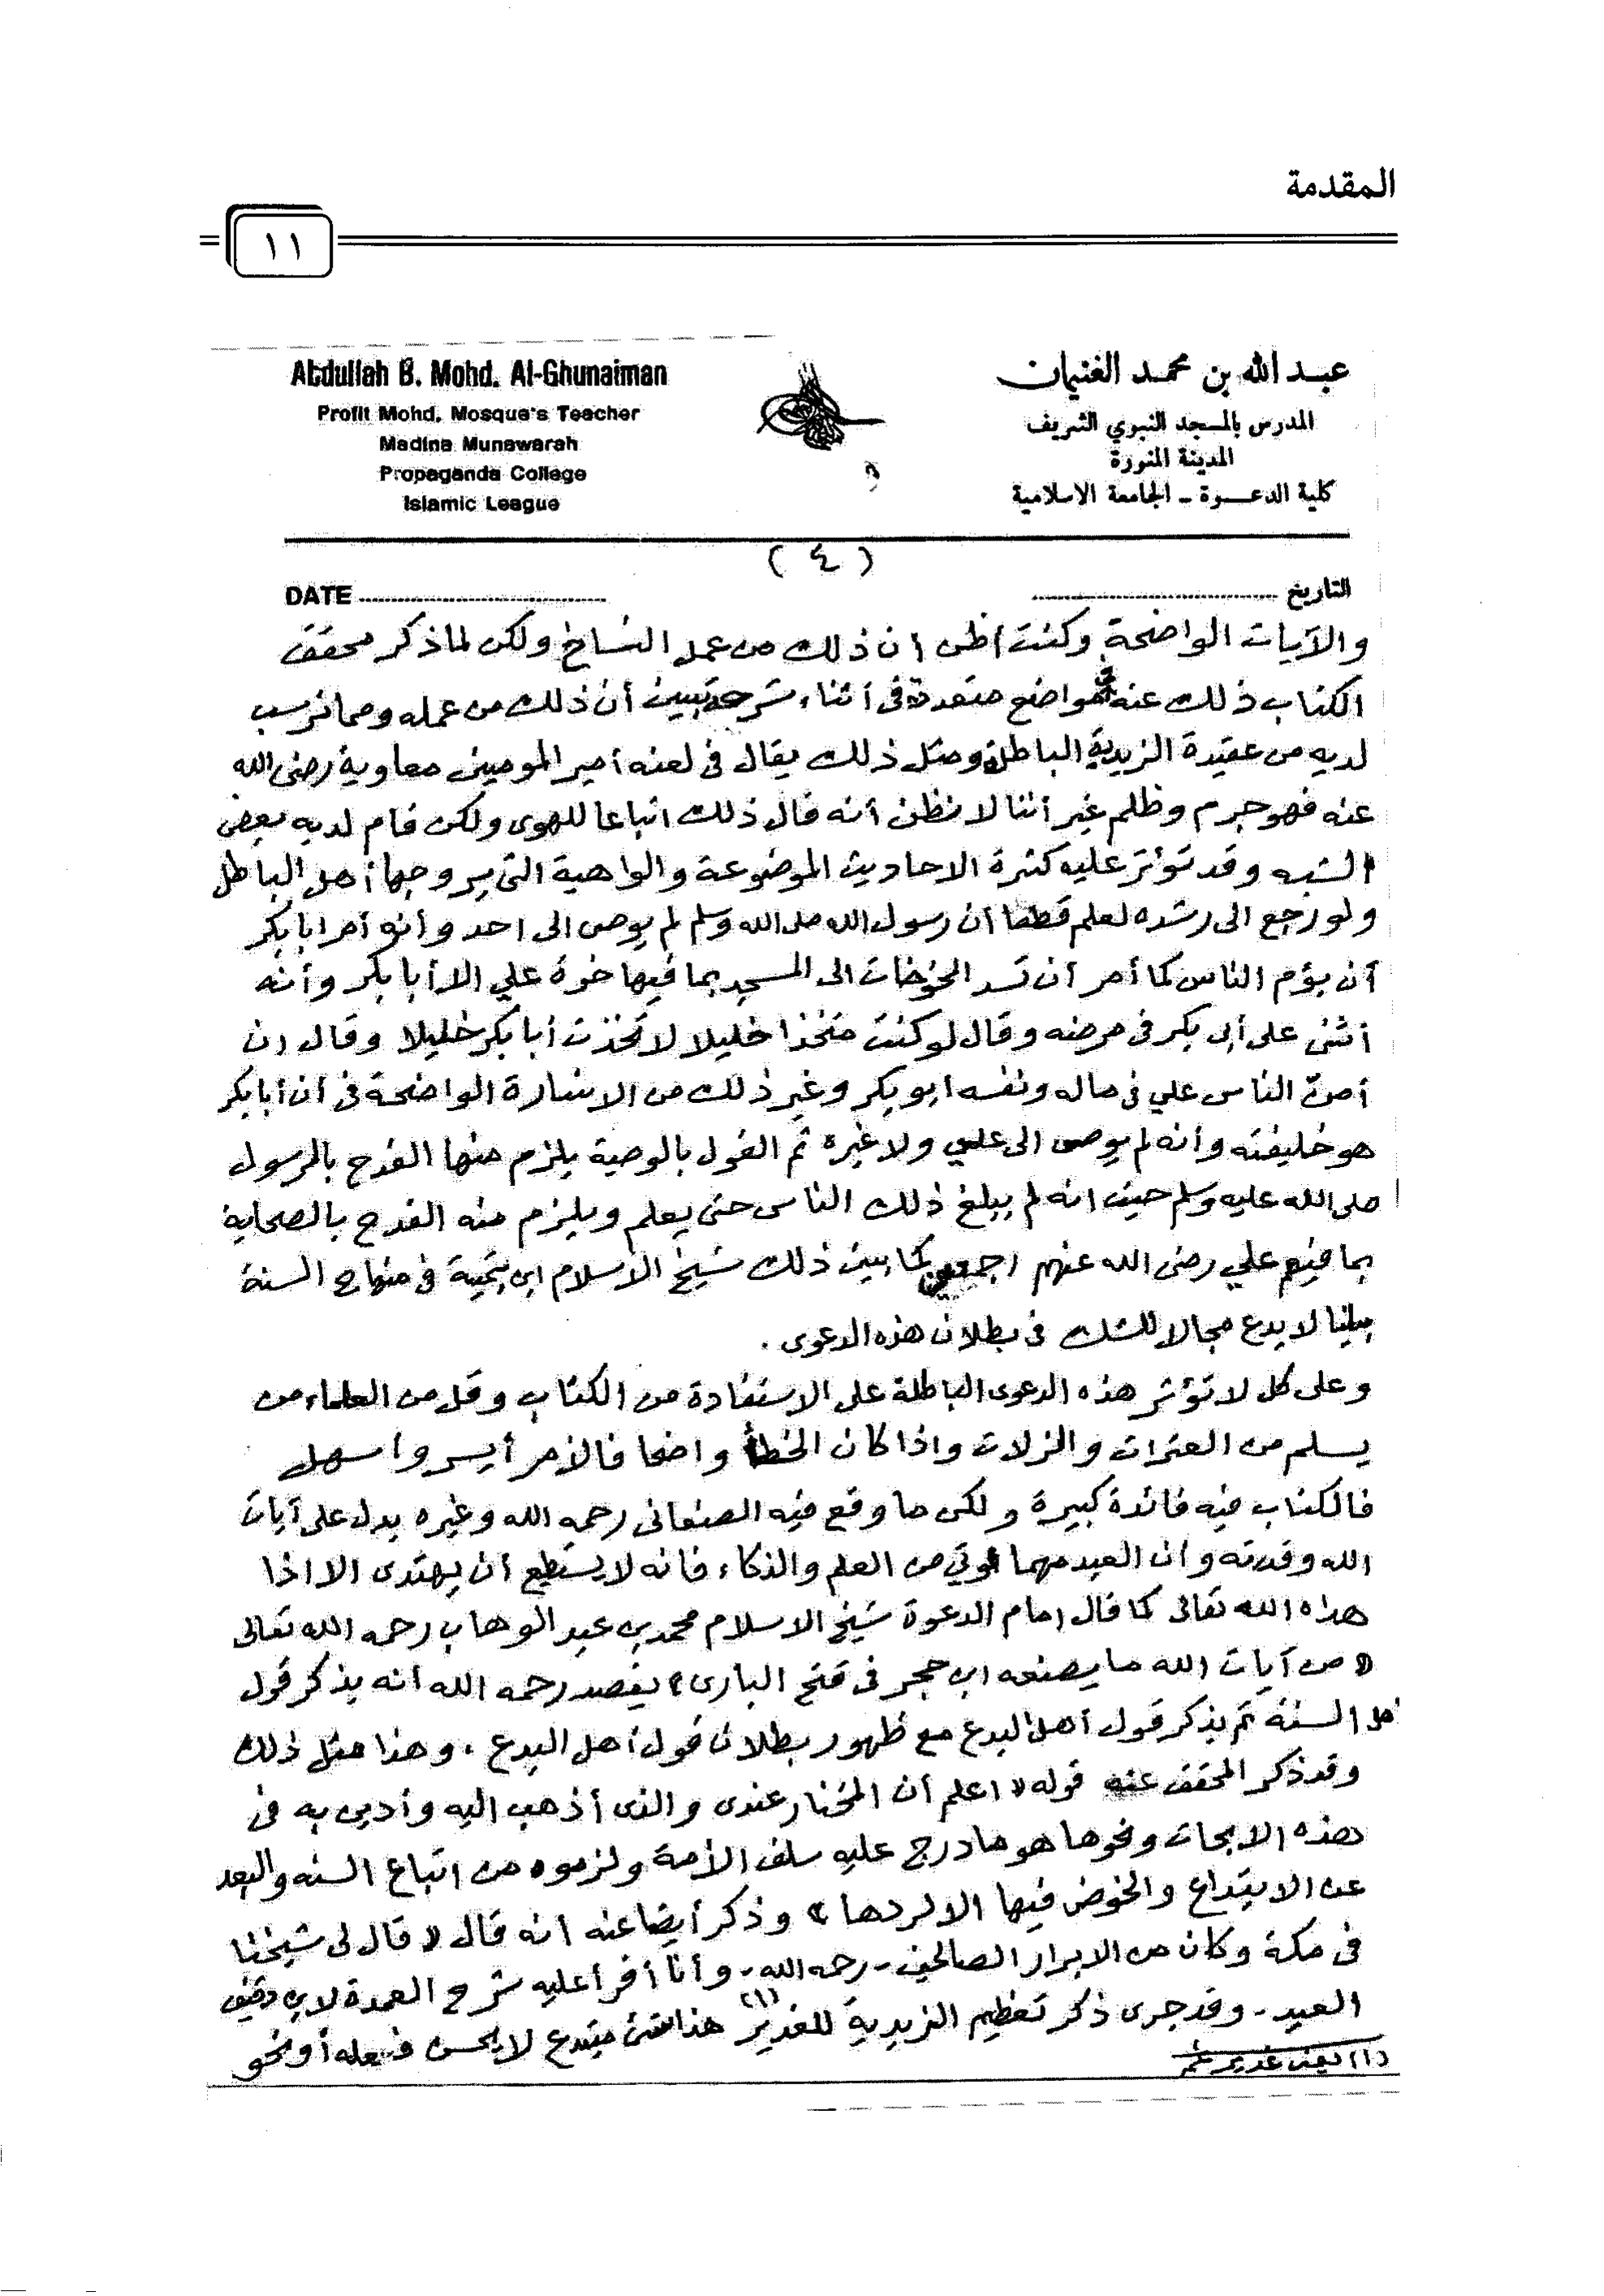 المقدمة
١١
Abdullah B. Mohd. Al-Ghunaiman
Profit Mohd. Mosque's Teacher
Madina Munawarah
Propaganda College
Islamic League
عبد الله بن محمد الغنيمان
المدرس بالمسجد النبوي الشريف
المدينة المنورة
كلية الدعوة - الجامعة الاسلامية
(٤)
DATE
التاريخ
والآيات الواضحة وكنت اظن ان ذلك من عمل النساخ ولكن لما ذكر محقق
الكتاب ذلك عنه في مواضع متعددة في أثناء شرحه تبين أن ذلك من عمله ومما ترسب
لديه من عقيدة الزيدية الباطلة ومثل ذلك يقال في لعنه أمير المومنين معاوية رضي الله
عنه فهو جرم وظلم غير أننا لا نظن أنه قال ذلك اتباعا للهوى ولكن قام لديه بعض
الشبه وقد تؤثر عليه كثرة الاحاديث الموضوعة والواهية التي يروجها أهل الباطل
ولو رجع الى رشده لعلم قطعا ان رسول الله صلى الله وسلم لم يوصى الى احد وأنه أمر ابا بكر
أن يؤم الناس كما أمر أن تسد الخوخات الى المسجد بما فيها خوة علي الا أبا بكر وأنه
أثنى على أبى بكر في مرضه وقال لو كنت متخذا خليلا لاتخذت أبا بكر خليلا وقال ان
أمنّ الناس علي في ماله ونفسه ابو بكر وغير ذلك من الاشارة الواضحة في أن أبا بكر
هو خليفته وأنه لم يوصى الى علي ولا غيره ثم القول بالوصية يلزم منها القدح بالرسول
صلى الله عليه وسلم حيث انه لم يبلغ ذلك الناس حتى يعلم ويلزم منه القدح بالصحابة
بما فيهم علي رضي الله عنهم اجمعين كما بين ذلك شيخ الاسلام ابن تيمية في منهاج السنة
بيانا لا يدع مجالا للشك في بطلان هذه الدعوى .
وعلى كل لا تؤثر هذه الدعوى الباطلة على الاستفادة من الكتاب وقل من العلماء من
يسلم من العثرات والزلات واذا كان الخطأ واضحا فالأمر أيسر وأسهل
فالكتاب فيه فائدة كبيرة ولكن ما وقع فيه الصنعاني رحمه الله وغيره يدل على آيات
الله وقدرته وان العبد مهما أوتي من العلم والذكاء فانه لا يستطيع أن يهتدى الا اذا
هداه الله تعالى كما قال إمام الدعوة شيخ الاسلام محمد بن عبد الوهاب رحمه الله تعالى
« من آيات الله ما يصنعه ابن حجر في فتح الباري » يقصد رحمه الله انه يذكر قول
أهل السنة ثم يذكر قول أهل البدع مع ظهور بطلان قول أهل البدع ، وهذا مثل ذلك
وقد ذكر المحقق عنه قوله « اعلم أن المختار عندي والذى أذهب اليه وأدين به في
هذه الابحاث ونحوها هو ما درج عليه سلف الأمة ولزموه من اتباع السنه والبعد
عن الابتداع والخوض فيها الا لردها » وذكر أيضا عنه انه قال « قال لى شيخنا
في مكة وكان من الابرار الصالحين - رحمه الله - وأنا أقرأ عليه شرح العمدة لابن دقيق
العيد - وقد جرى ذكر تعظيم الزيدية للغدير (١) هذا شئ مبتدع لا يحسن فعله أو نحو
(١) يعني غدير خم